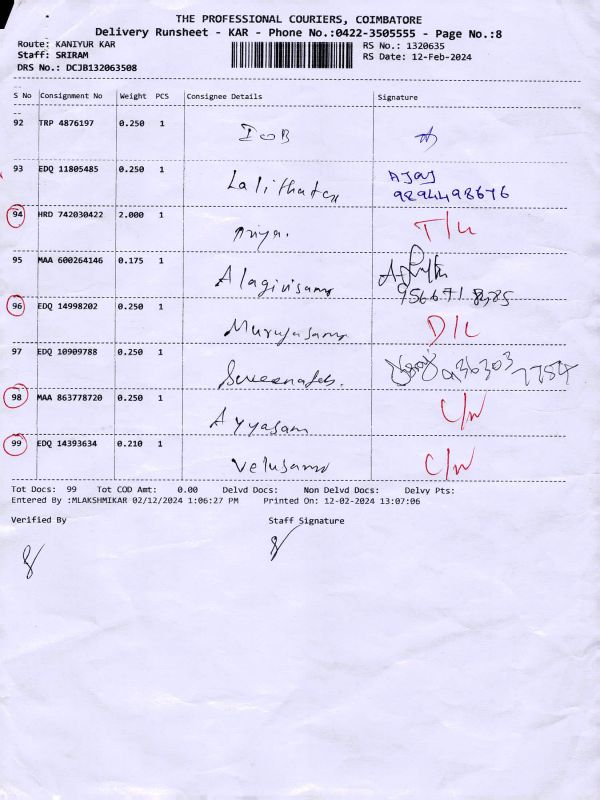 THE PROFESSIONAL COURIERS, COIMBATORE
Delivery Runsheet - KAR - Phone No.:0422-3505555 - Page No.:8
Route: KANIYUR KAR RS No.: 1320635
Staff: SRIRAM RS Date: 12-Feb-2024
DRS No.: DCJB132063508
S No Consignment No Weight PCS Consignee Details Signature
92 TRP 4876197 0.250 1 IOB
93 EDQ 11805485 0.250 1 AJAJ
9894498676
94 HRD 742030422 2.000 1 Priya. T/L
95 MAA 600264146 0.175 1 Alagirisamy
96 EDQ 14998202 0.250 1 Murugasamy D/L
97 EDQ 10909788 0.250 1
98 MAA 863778720 0.250 1 Ayyasam C/N
99 EDQ 14393634 0.210 1 Velusamy C/N
Tot Docs: 99 Tot COD Amt: 0.00 Delvd Docs: Non Delvd Docs: Delvy Pts:
Entered By :MLAKSHMIKAR 02/12/2024 1:06:27 PM Printed On: 12-02-2024 13:07:06
Verified By Staff Signature